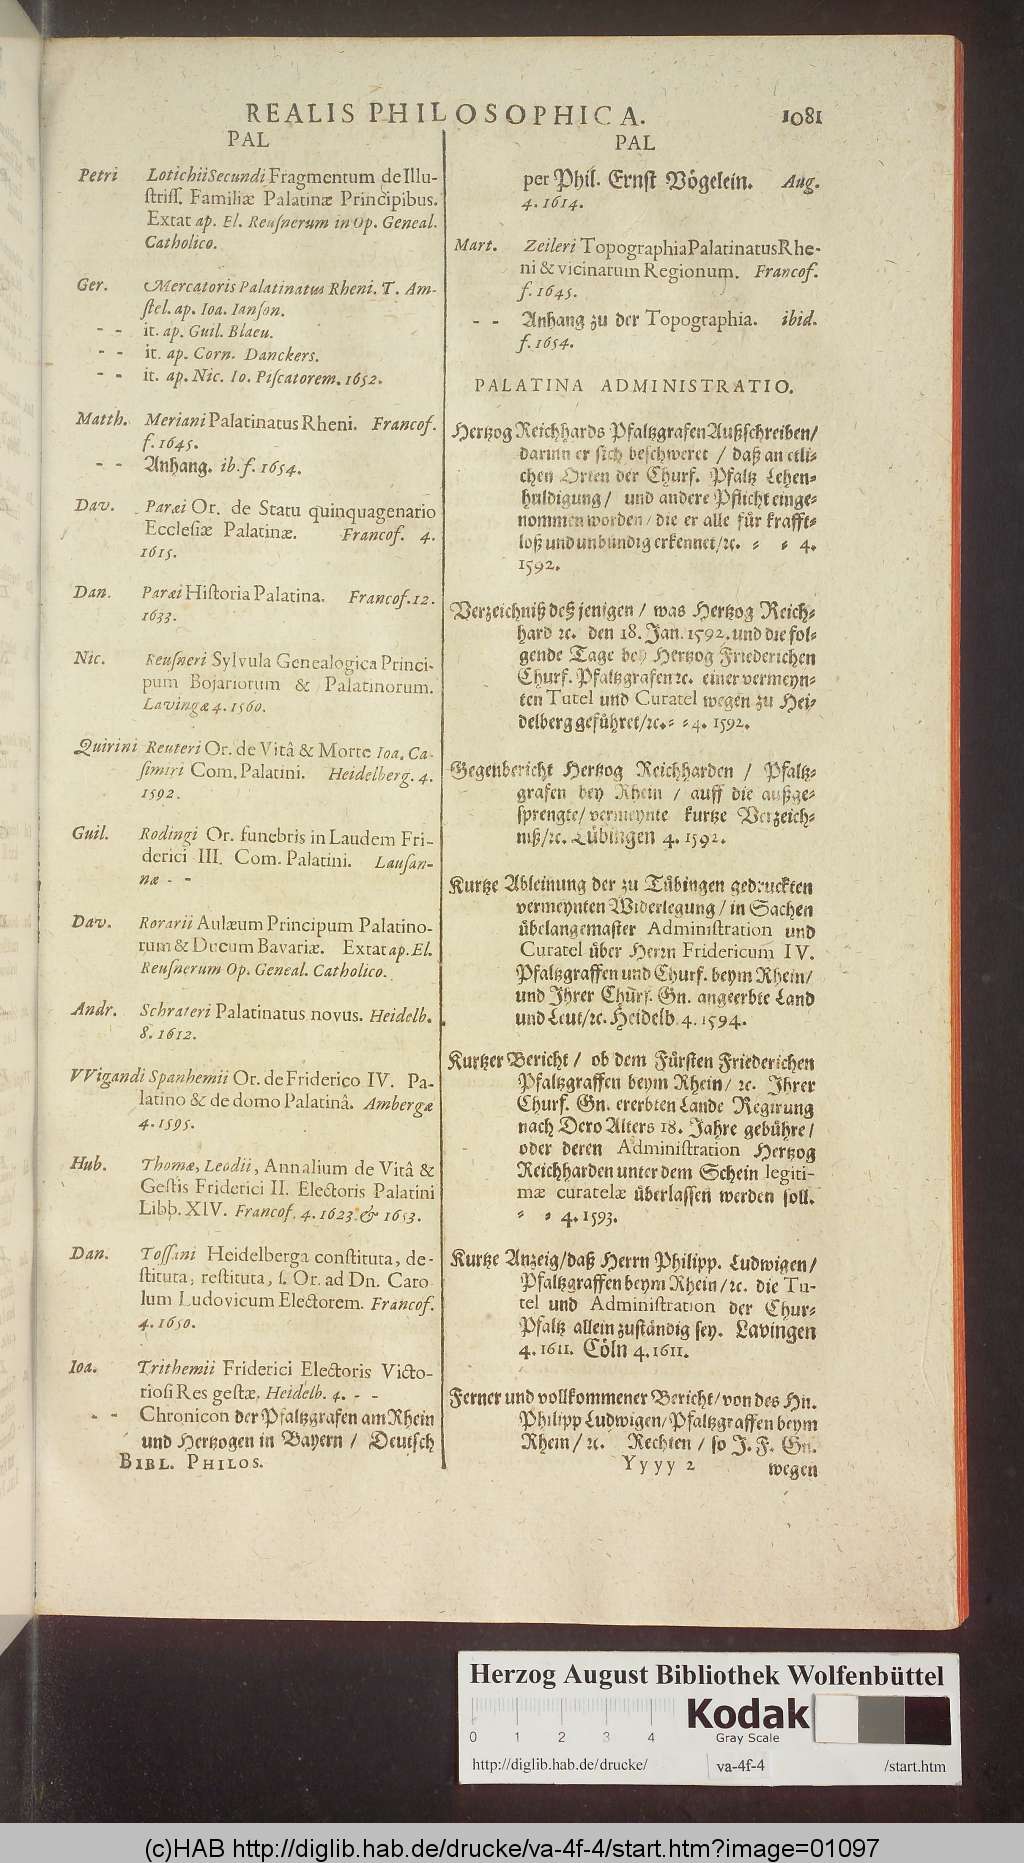 REALIS PHILOSOPHICA. 1081
PAL
Petri Lotichii Secundi Fragmentum de Illu-
ſtriſſ. Familiæ Palatinæ Principibus.
Extat ap. El. Reuſnerum in Op. Geneal.
Catholico.
Ger. Mercatoris Palatinatus Rheni. T. Am-
ſtel. ap. Ioa. Ianſon.
- - it. ap. Guil. Blaeu.
- - it. ap. Corn. Danckers.
- - it. ap. Nic. Io. Piſcatorem. 1652.
Matth. Meriani Palatinatus Rheni. Francof.
f. 1645.
- - Anhang. ib. f. 1654.
Dav. Paræi Or. de Statu quinquagenario
Eccleſiæ Palatinæ. Francof. 4.
1615.
Dan. Paræi Hiſtoria Palatina. Francof. 12.
1633.
Nic. Reuſneri Sylvula Genealogica Princi-
pum Bojariorum & Palatinorum.
Lavingæ 4. 1560.
Quirini Reuteri Or. de Vitâ & Morte Ioa. Ca-
ſimiri Com. Palatini. Heidelberg. 4.
1592.
Guil. Rodingi Or. funebris in Laudem Fri-
derici III. Com. Palatini. Lauſan-
næ - -
Dav. Rorarii Aulæum Principum Palatino-
rum & Ducum Bavariæ. Extat ap. El.
Reuſnerum Op. Geneal. Catholico.
Andr. Schrateri Palatinatus novus. Heidelb.
8. 1612.
VVigandi Spanhemii Or. de Friderico IV. Pa-
latino & de domo Palatinâ. Ambergæ
4. 1595.
Hub. Thomæ, Leodii, Annalium de Vitâ &
Geſtis Friderici II. Electoris Palatini
Libb. XIV. Francof. 4. 1623. & 1653.
Dan. Toſſani Heidelberga conſtituta, de-
ſtituta, reſtituta, ſ. Or. ad Dn. Caro
lum Ludovicum Electorem. Francof.
4. 1650.
Ioa. Trithemii Friderici Electoris Victo-
rioſi Res geſtæ. Heidelb. 4. - -
- - Chronicon der Pfaltzgrafen am Rhein
und Hertzogen in Bayern / Deutſch
BIBL. PHILOS.
PAL
per Phil. Ernſt Vögelein. Aug.
4. 1614.
Mart. Zeileri Topographia Palatinatus Rhe-
ni & vicinarum Regionum. Francof.
f. 1645.
- - Anhang zu der Topographia. ibid.
f. 1654.
PALATINA ADMINISTRATIO.
Hertzog Reichhards Pfaltzgrafen Außſchreiben/
darinn er ſich beſchweret / daß an etli-
chen Orten der Churf. Pfaltz Lehen-
huldigung / und andere Pflicht einge-
nommen worden / die er alle für krafft-
loß und unbündig erkennet/ꝛc. - - 4.
1592.
Verzeichniß deß jenigen / was Hertzog Reich-
hard ꝛc. den 18. Jan. 1592. und die fol-
gende Tage bey Hertzog Friederichen
Churf. Pfaltzgrafen ꝛc. einer vermeyn-
ten Tutel und Curatel wegen zu Hei-
delberg geführet/ꝛc. - - 4. 1592.
Gegenbericht Hertzog Reichharden / Pfaltz-
grafen bey Rhein / auff die außge-
ſprengte / vermeynte kurtze Verzeich-
niß/ꝛc. Tübingen 4. 1592.
Kurtze Ableinung der zu Tübingen gedruckten
vermeynten Widerlegung / in Sachen
übelangemaſter Adminiſtration und
Curatel über Herrn Fridericum IV.
Pfaltzgraffen und Churf. beym Rhein/
und Ihrer Churf. Gn. angeerbte Land
und Leut/ꝛc. Heidelb. 4. 1594.
Kurtzer Bericht / ob dem Fürſten Friederichen
Pfaltzgraffen beym Rhein / ꝛc. Ihrer
Churf. Gn. ererbten Lande Regirung
nach Dero Alters 18. Jahre gebühre /
oder deren Adminiſtration Hertzog
Reichharden unter dem Schein legiti-
mæ curatelæ überlaſſen werden ſoll.
- - 4. 1593.
Kurtze Anzeig / daß Herrn Philipp. Ludwigen /
Pfaltzgraffen beym Rhein / ꝛc. die Tu-
tel und Adminiſtration der Chur-
Pfaltz allein zuſtändig ſey. Lavingen
4. 1611. Cöln 4. 1611.
Ferner und vollkommener Bericht / von des Hn.
Philipp Ludwigen / Pfaltzgraffen beym
Rhein / ꝛc. Rechten / ſo J. F. Gn.
Yyyy 2 wegen
Herzog August Bibliothek Wolfenbüttel
0 1 2 3 4
Kodak
Gray Scale
http://diglib.hab.de/drucke/ va-4f-4 /start.htm
(c)HAB http://diglib.hab.de/drucke/va-4f-4/start.htm?image=01097